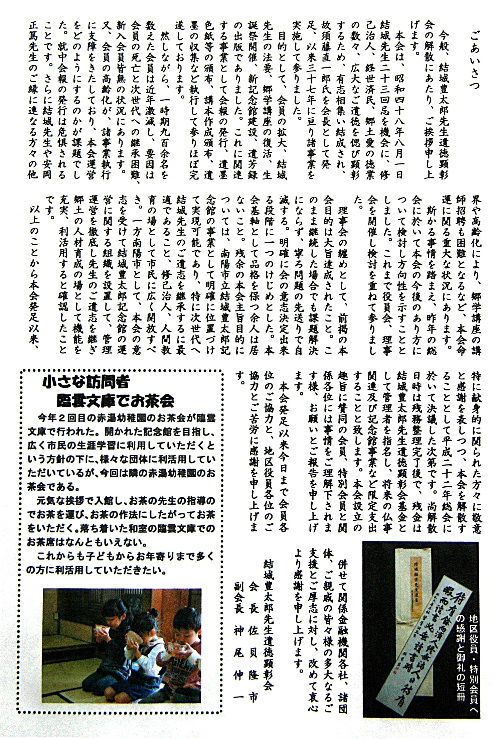 ごあいさつ
今般、結城豊太郎先生遺徳顕彰
会の解散にあたり、ご挨拶申し上
げます。
本会は、昭和四十八年八月一日
結城先生二十三回忌を機会に、修
己治人、経世済民、郷土愛の徳業
の数々、広大なご遺徳を偲び顕彰
するため、有志相集い結成され、
故須藤直一郎氏を会長として発
足、以来三十七年に亘り諸事業を
実施して参りました。
目的として、会員の拡大、結城
先生の法要、郷学講座の復活、生
誕祭開催、新記念館建設、遺芳録
の出版でありました。これに関連
する事業として会報の発行、遺墨
色紙等の頒布、講本作成頒布、遺
墨の収集など執行して参りほぼ完
遂しております。
然しながら、一時期九百余名を
数えた会員は近年激減し、要因は
会員の死亡と次世代への継承困難、
新入会員皆無の状況にあります。
又、会員の高齢化が、諸事業執行
に支障をきたしており、本会運営
をどのようにするのかが課題でし
た。就中会報の発行は危惧される
ことです。さらに結城先生や安岡
正篤先生のご縁に連なる方々の他
界や高齢化により、郷学講座の講
師招聘も困難となるなど、本会命
運に関る重大な状況にあります。
斯かる事情を踏まえ、昨年の総
会に於いて本会の今後のあり方に
ついて検討し方向性を示すことと
しました。これまで役員会、理事
会を開催し検討を重ねて参りまし
た。
理事会の纏めとして、前掲の本
会目的は大旨達成されたこと。こ
のまま継続した場合でも課題解決
にならず、寧ろ問題の先送りで自
滅する。明確に会の意志決定出来
る段階に一つのけじめとした。本
会基軸として品格を保つ余人は居
ないこと。残余の本会主旨目的に
ついては、南陽市立結城豊太郎記
念館の事業として明確に位置づけ
て実現可能であり、特に次世代へ
結城先生のご遺志を継承するに最
適であること、修己治人、人間教
育の場として市民に広く開放すべ
き。一方南陽市として、本会の意
志を受けて結城豊太郎記念館の運
営に関する組織を設置して、管理
運営を徹底し先生のご遺志を継ぎ
郷土の人材育成の場として機能を
充実、利活用すると確認したこと
です。
以上のことから本会発足以来、
特に献身的に関られた方々に敬意
と感謝を表しつつ、本会を解散す
ることとして平成二十二年総会に
於いて決議した次第です。尚解散
日時は残務整理完了後で、残金は
結城豊太郎先生遺徳顕彰会基金と
して管理者を指名し、将来の仏事
関連及び記念館事業など限定支出
することと残します。本会設立の
趣旨に賛同の会員、特別会員と関
係各位には事情をご理解下されま
す様、お願いとご報告を申し上げ
ます。
本会発足以来今日まで会員各
位のご協力と、地区役員各位のご
協力とご苦労に感謝を申し上げま
す。
併せて関係金融機関各社、諸団
体、ご親戚の皆々様の多大なるご
支援とご厚志に対し、改めて衷心
より感謝を申し上げます。
結城豊太郎先生遺徳顕彰会
会長 佐貝隆市
副会長 神尾伸一
地区役員・特別会員へ
の感謝と御礼の短冊
小さな訪問者
臨雲文庫でお茶会
今年２回目の赤湯幼稚園のお茶会が臨雲
文庫で行われた。開かれた記念館を目指し、
広く市民の生涯学習に利用していただくと
いう方針の下に、様々な団体に利活用してい
ただいているが、今回は隣の赤湯幼稚園のお
茶会である。
元気な挨拶で入館し、お茶の先生の指導の
でお茶を運び、お茶の作法にしたがってお茶
をいただく。落ち着いた和室の臨雲文庫での
お茶席はなんともいえない。
これからも子どもからお年寄りまで多く
の方に利活用していただきたい。